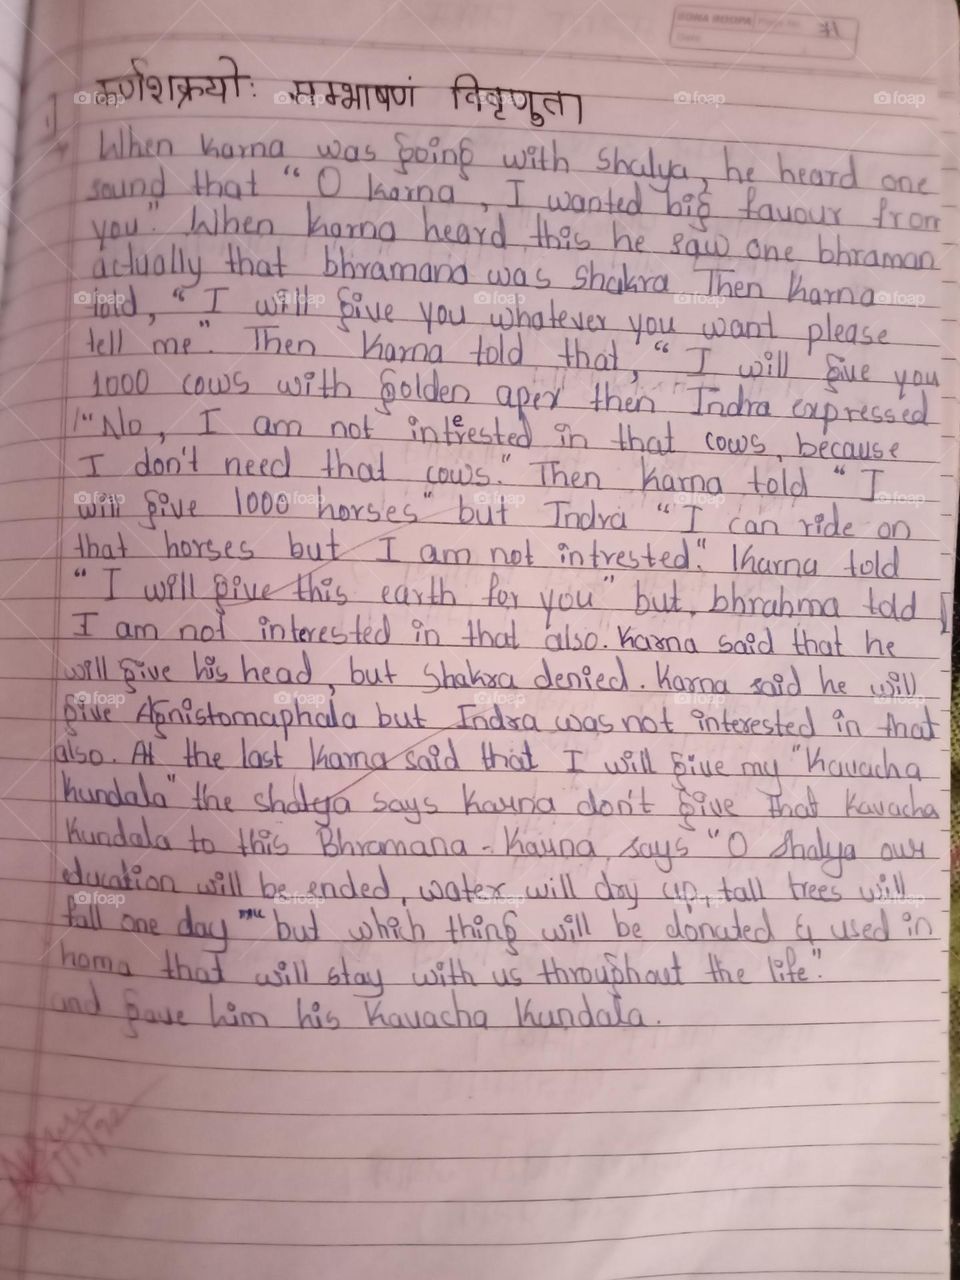 कर्णशक्रयोः सम्भाषणं विवृणुत।
1]
When Karna was going with Shalya, he heard one
sound that " O Karna, I wanted big favour from
you". When Karna heard this he saw one bhraman
actually that bhramana was Shakra Then Karna
told, " I will give you whatever you want please
tell me". Then Karna told that, " I will give you
1000 cows with golden aper then Indra expressed
"No, I am not interested in that cows, because
I don't need that cows." Then Karna told " I
will give 1000 horses" but Indra "I can ride on
that horses but I am not intrested." Karna told
" I will give this earth for you" but, bhrahma told
I am not interested in that also. Karna said that he
will give his head, but Shakra denied. Karna said he will
give Agnistomaphala but Indra was not interested in that
also. At the last Karna said that I will give my "Kavacha
Kundala" the shalya says Karna don't give that Kavacha
Kundala to this Bhramana - Karna says "O Shalya our
education will be ended, water will dry up, tall trees will
fall one day" but which thing will be donated & used in
homa that will stay with us throughout the life".
and gave him his Kavacha Kundala.
SONA ROOPA
Page No.
Date
foap